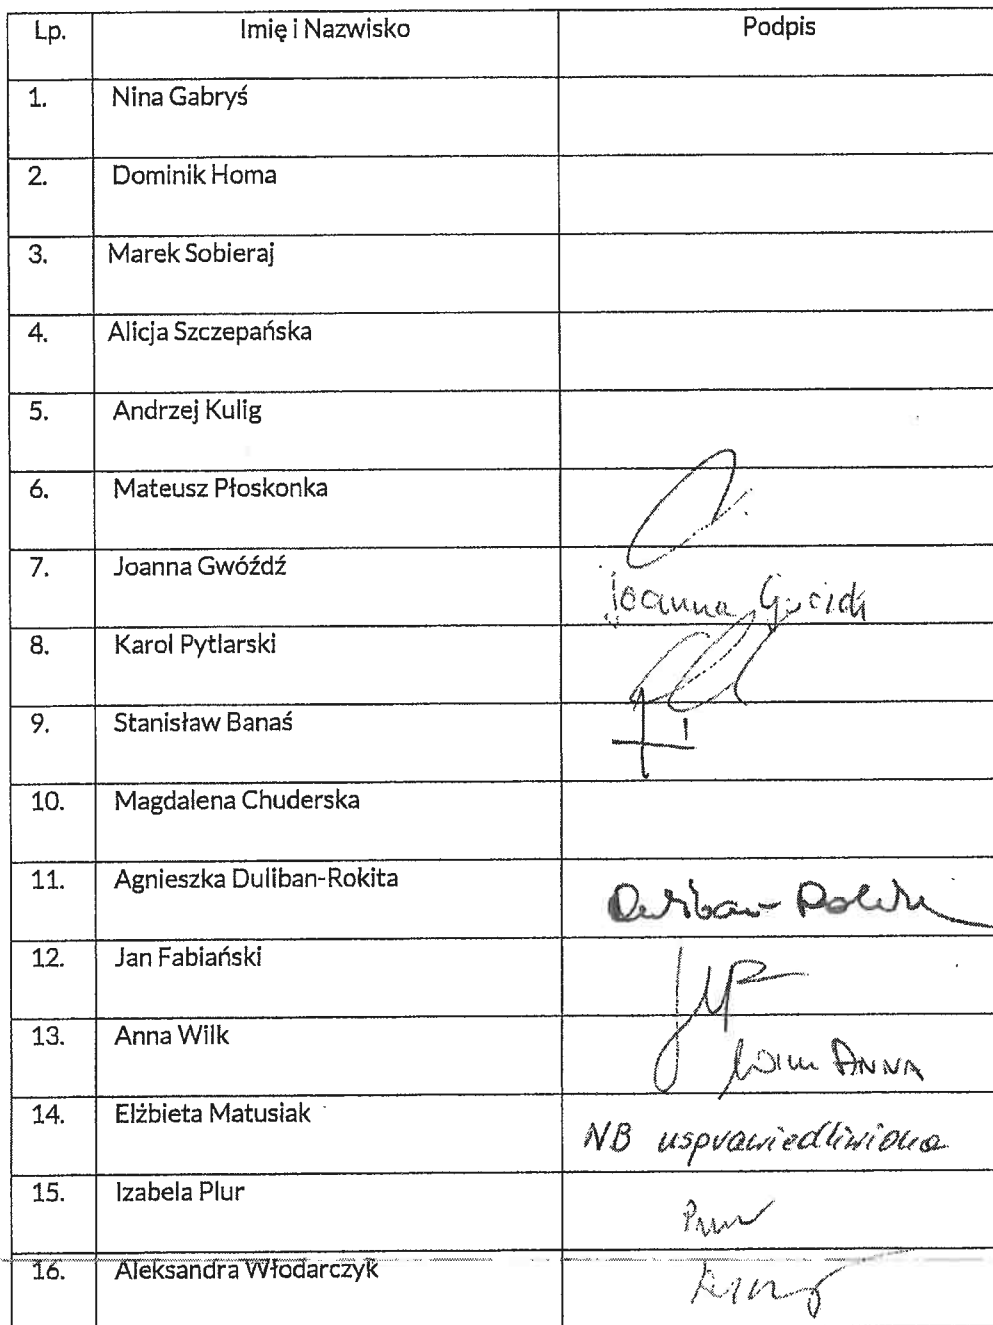 Lp. Imię i Nazwisko Podpis
1. Nina Gabryś
2. Dominik Homa
3. Marek Sobieraj
4. Alicja Szczepańska
5. Andrzej Kulig
6. Mateusz Płoskonka
7. Joanna Gwóźdź Joanna Gwóźdź
8. Karol Pytlarski
9. Stanisław Banaś
10. Magdalena Chuderska
11. Agnieszka Duliban-Rokita Duliban-Rokita
12. Jan Fabiański
13. Anna Wilk Wilk ANNA
14. Elżbieta Matusiak NB usprawiedliwiona
15. Izabela Plur
16. Aleksandra Włodarczyk